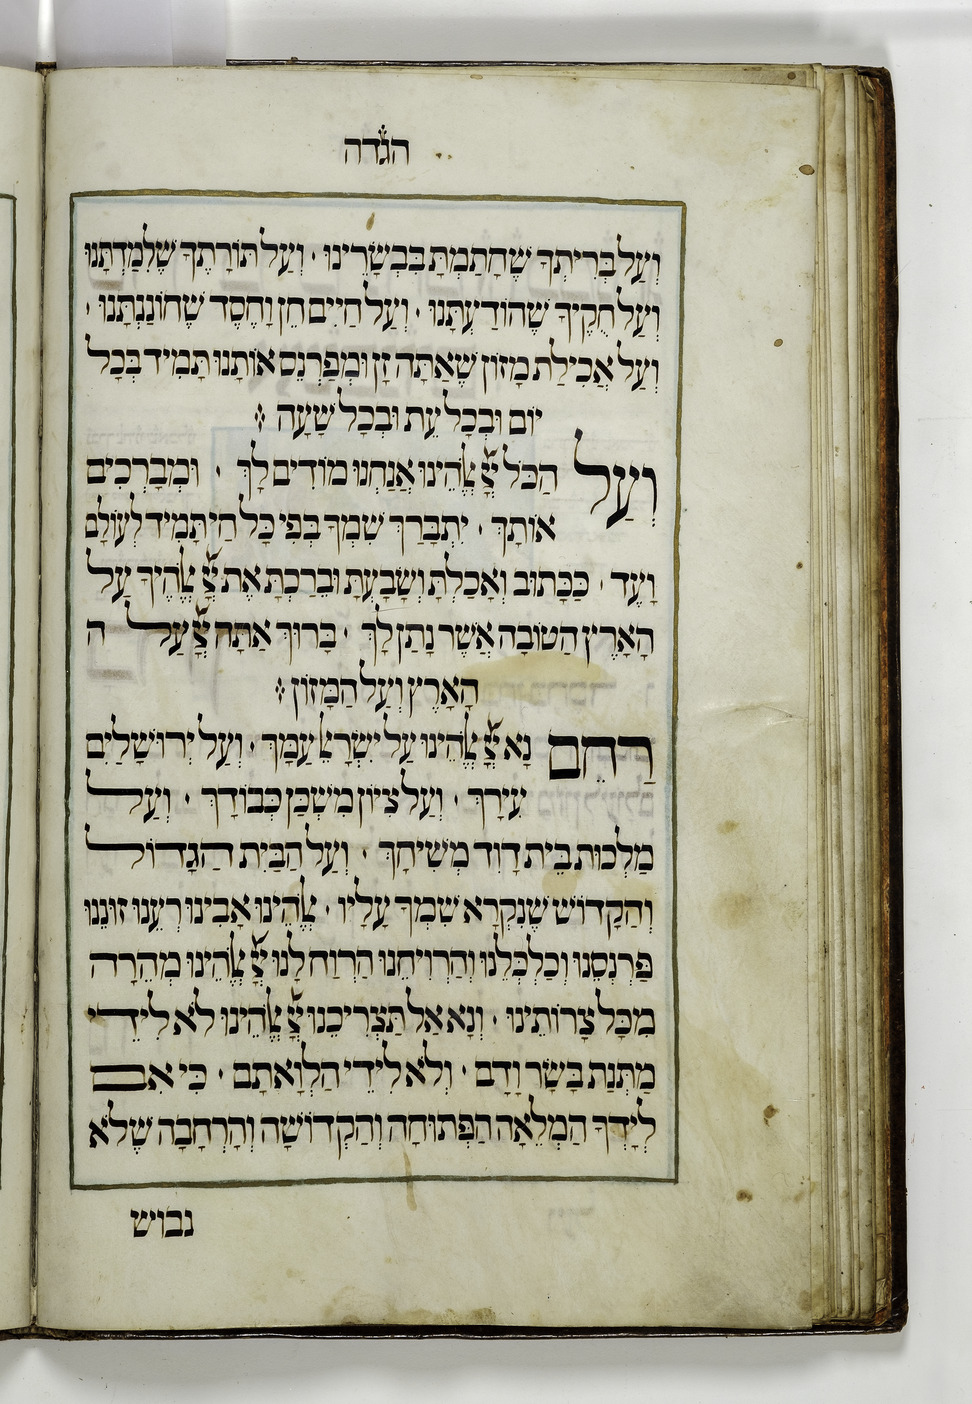 הגדה
וְעַל בְּרִיתְךָ שֶׁחָתַמְתָּ בִּבְשָׂרֵינוּ · וְעַל תּוֹרָתְךָ שֶׁלִמַדְתָּנוּ
וְעַל חֻקֶיךָ שֶׁהוֹדַעְתָּנוּ · וְעַל חַיִים חֵן וָחֶסֶד שֶׁחוֹנַנְתָּנוּ ·
וְעַל אֲכִילַת מָזוֹן שֶׁאַתָּה זָן וּמְפַרְנֵס אוֹתָנוּ תָּמִיד בְּכָל
יוֹם וּבְכָל עֵת וּבְכָל שָׁעָה
וְעַל הַכֹּל יְיָ אֱלֹהֵינוּ אֲנַחְנוּ מוֹדִים לָךְ · וּמְבָרְכִים
אוֹתָךְ · יִתְבָּרַךְ שִׁמְךָ בְּפִי כָּל חַי תָּמִיד לְעוֹלָם
וָעֶד · כַּכָּתוּב וְאָכַלְתָּ וְשָׂבָעְתָּ וּבֵרַכְתָּ אֶת יְיָ אֱלֹהֶיךָ עַל
הָאָרֶץ הַטוֹבָה אֲשֶׁר נָתַן לָךְ · בָּרוּךְ אַתָּה יְיָ עַל ה
הָאָרֶץ וְעַל הַמָּזוֹן
רַחֵם נָא יְיָ אֱלֹהֵינוּ עַל יִשְׂרָאֵל עַמָּךְ · וְעַל יְרוּשָׁלַיִם
עִירָךְ · וְעַל צִיוֹן מִשְׁכַּן כְּבוֹדָךְ · וְעַל
מַלְכוּת בֵּית דָוִד מְשִׁיחָךְ · וְעַל הַבַּיִת הַגָדוֹל
וְהַקָדוֹשׁ שֶׁנִקְרָא שִׁמְךָ עָלָיו · אֱלֹהֵינוּ אָבִינוּ רְעֵנוּ זוּנֵנוּ
פַּרְנְסֵנוּ וְכַלְכְּלֵנוּ וְהַרְוִיחֵנוּ הַרְוַח לָנוּ יְיָ אֱלֹהֵינוּ מְהֵרָה
מִכָּל צָרוֹתֵינוּ · וְנָא אַל תַּצְרִיכֵנוּ יְיָ אֱלֹהֵינוּ לֹא לִידֵי
מַתְּנַת בָּשָׂר וָדָם · וְלֹא לִידֵי הַלְוָאָתָם · כִּי אִם
לְיָדְךָ הַמְלֵאָה הַפְּתוּחָה וְהַקְדוֹשָׁה וְהָרְחָבָה שֶׁלֹא
נבוש